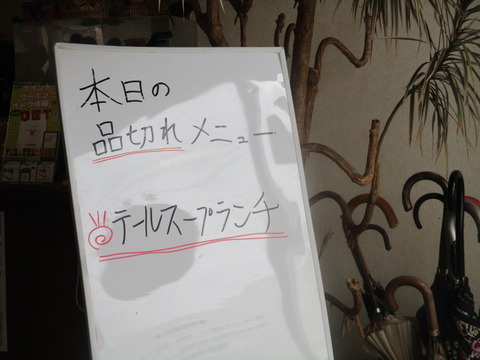 本日の
品切れメニュー
テールスープランチ